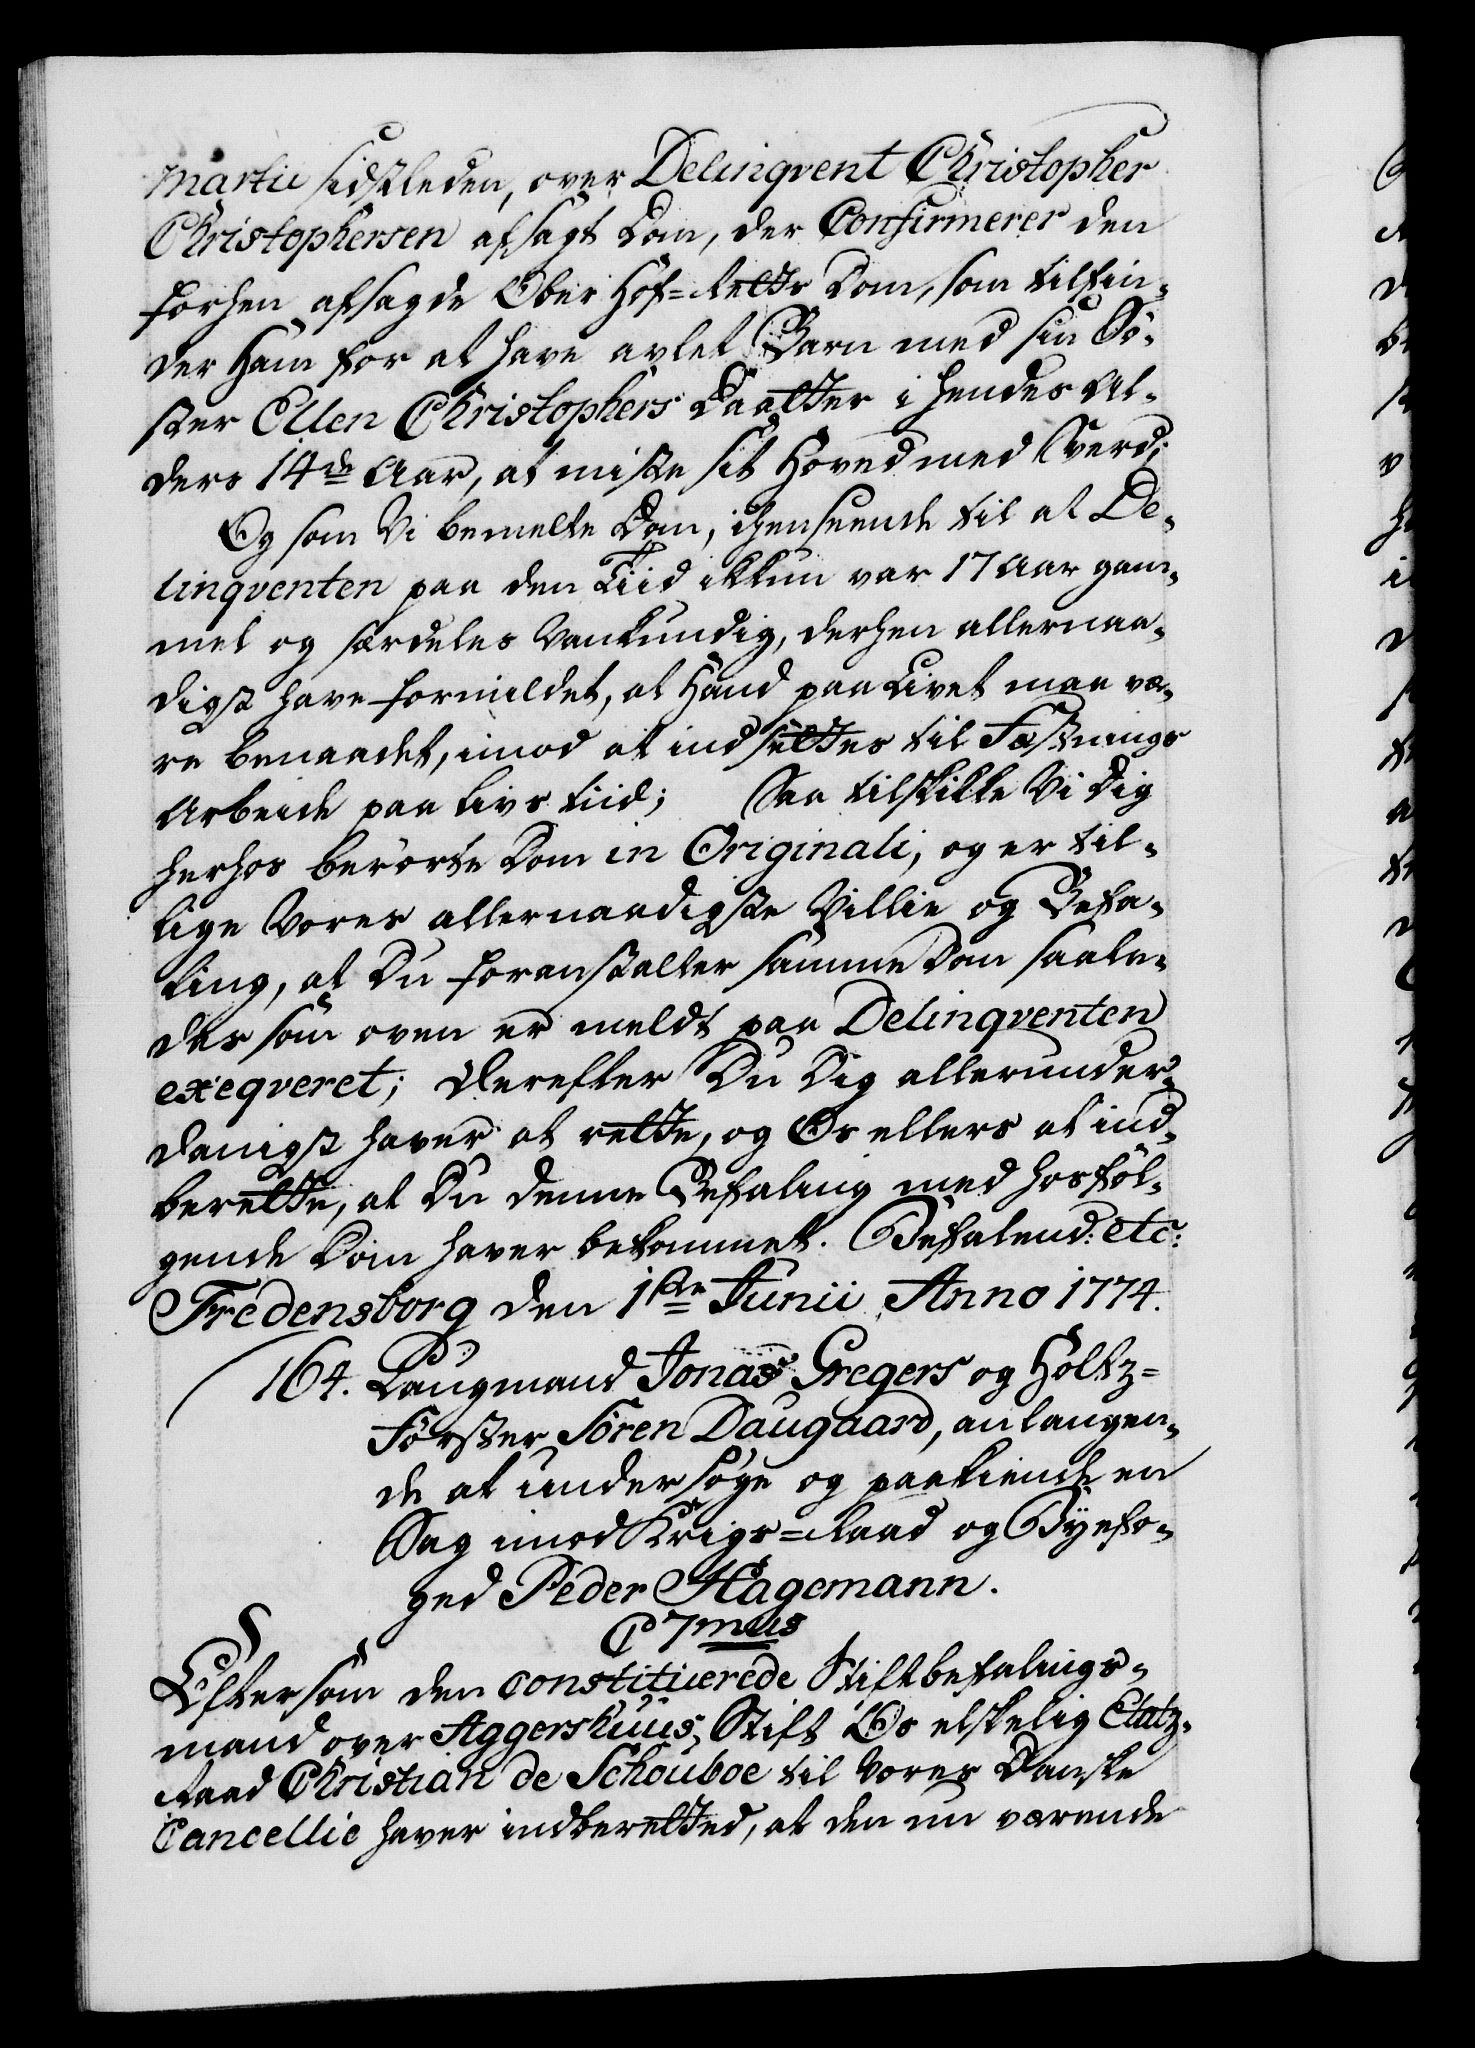 Martii sidstleden, over Delinqvent Christopher
Christophersen afsagt Dom, der Confirmerer den
forhen afsagde Ober Hof-Retts Dom, som tilfin-
der Ham for at have avlet Barn med sin Sö-
ster Ellen Christophers Daatter i hendes Al-
ders 14de Aar, at miste sit Hoved med Sverd;
Og som Vi bemelte Dom, i henseende til at De-
linqventen paa den Tiid ikkun var 17 Aar gam-
mel og særdeles Vankundig, derhen allernaa-
digst have formildet, at Hand paa Livet maa væ-
re benaadet, imod at indsettes til Fæstnings
Arbeide paa livs tiid; Saa tilskikke Vi Dig
herhos berörte Dom in Originali, og er til-
lige Vores allernaadigste Villie og Befa-
ling, at Du foranstalter samme Dom saale-
des som oven er meldt paa Delinqventen
exeqveret; Derefter Du Dig allerunder-
danigst haver at rette, og Os ellers at ind-
berette, at Du denne Befaling med hosföl-
gende Dom haver bekommet. Befalend: etc:
Fredensborg den 1ste Junii Anno 1774.
164. Laugmand Jonas Gregers og Holtz-
Förster Sören Daugaard, anlangen-
de at undersöge og paakiende en
Sag imod Krigs-Raad og Byefo-
ged Peder Hagemann.
C 7mus
Eftersom den constituerede Stiftbefalings-
mand over Aggershuus Stift Os elskelig Etatz-
Raad Christian de Schouboe til Vores Danske
Cancellie haver indberetted, at den nu værende